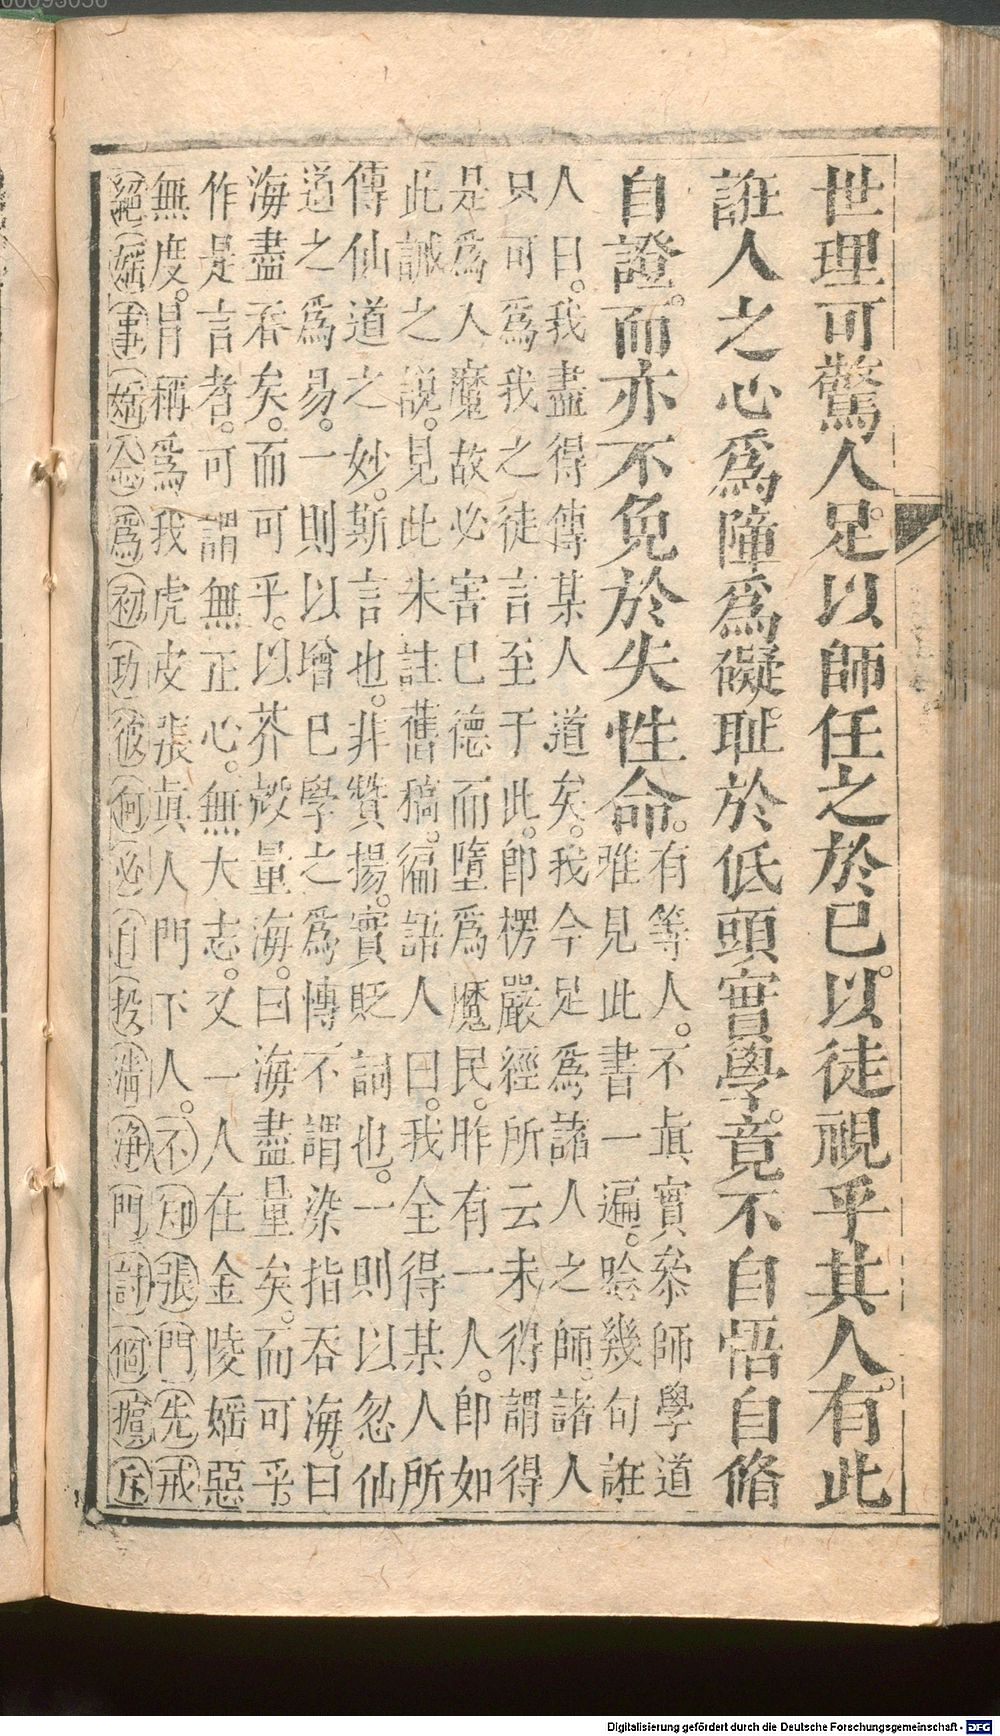 世理可驚人足。以師任之於已。以徒視乎其人。有此
誑人之心爲障爲礙。耻於低頭實學。竟不自悟自脩
自證。而亦不免於失性命。有等人。不眞實叅師學道
唯見此書一遍。唸幾句誑
人曰。我盡得傳某人道矣。我今足爲諸人之師。諸人
只可爲我之徒言至于此。即楞嚴經所云未得謂得
是爲人魔故必害已德而墮爲魔民。昨有一人。即如
此誡之說。見此未註舊稿。徧語人曰。我全得某人所
傳仙道之妙。斯言也。非贊揚。實貶詞也。一則以忽仙
道之爲易。一則以增已學之爲慱不謂染指吞海。曰
海盡吞矣。而可乎。以芥殻量海。曰海盡量矣。而可乎。
作是言者。可謂無正心。無大志。又一人在金陵婬惡
無度。冐稱爲我虎皮張眞人門下人。不知張門先戒
絕婬事婬念爲初功彼何必自投淸淨門討個擯斥
Digitalisierung gefördert durch die Deutsche Forschungsgemeinschaft - DFG